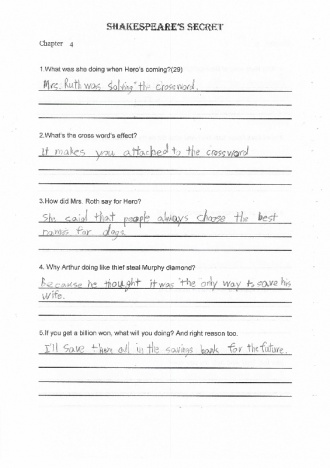 SHAKESPEARE'S SECRET
Chapter 4
1.What was she doing when Hero's coming?(29)
Mrs. Ruth was solving the crossword.
2.What's the cross word's effect?
It makes you attached to the crossword
3.How did Mrs. Roth say for Hero?
She said that people always choose the best
names for dogs
4. Why Arthur doing like thief steal Murphy diamond?
Because he thought it was the only way to save his
wife.
5.If you get a billion won, what will you doing? And right reason too.
I'll save them all in the savings bank for the future.